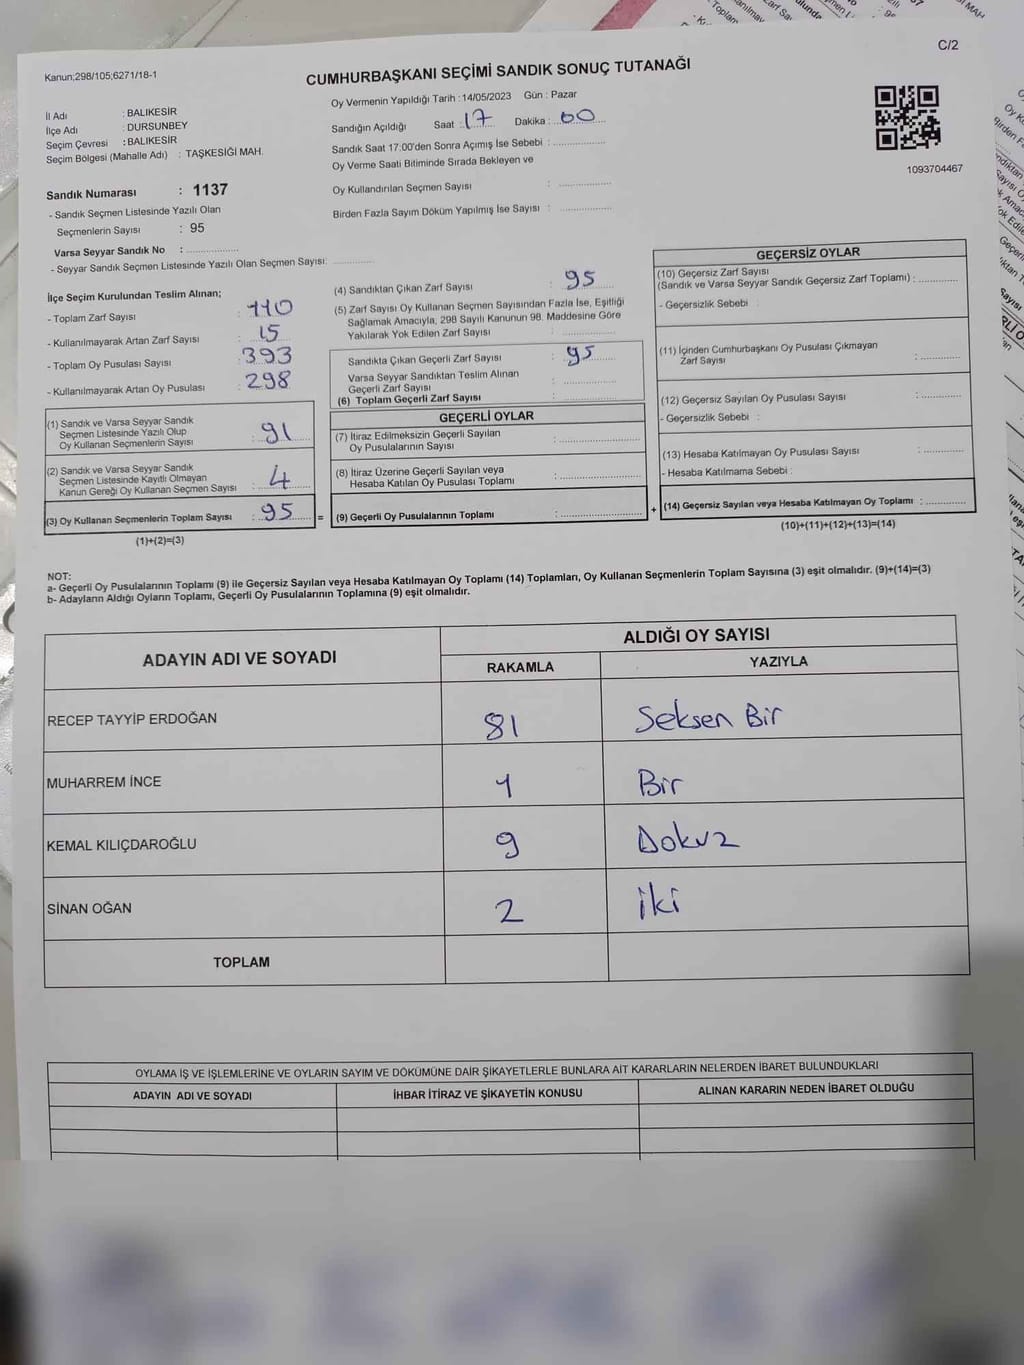 C/2
Kanun;298/105;6271/18-1
CUMHURBAŞKANI SEÇİMİ SANDIK SONUÇ TUTANAĞI
İl Adı : BALIKESİR
İlçe Adı : DURSUNBEY
Seçim Çevresi : BALIKESİR
Seçim Bölgesi (Mahalle Adı) : TAŞKESİĞİ MAH.
Sandık Numarası : 1137
- Sandık Seçmen Listesinde Yazılı Olan
Seçmenlerin Sayısı : 95
Varsa Seyyar Sandık No : ..................
- Seyyar Sandık Seçmen Listesinde Yazılı Olan Seçmen Sayısı: ............
Oy Vermenin Yapıldığı Tarih : 14/05/2023 Gün : Pazar
Sandığın Açıldığı Saat : 17 Dakika : 00
Sandık Saat 17:00'den Sonra Açımış İse Sebebi : ................
Oy Verme Saati Bitiminde Sırada Bekleyen ve
Oy Kullandırılan Seçmen Sayısı : ................
Birden Fazla Sayım Döküm Yapılmış İse Sayısı : ................
1093704467
İlçe Seçim Kurulundan Teslim Alınan;
- Toplam Zarf Sayısı : 110
- Kullanılmayarak Artan Zarf Sayısı : 15
- Toplam Oy Pusulası Sayısı : 393
- Kullanılmayarak Artan Oy Pusulası : 298
(1) Sandık ve Varsa Seyyar Sandık
Seçmen Listesinde Yazılı Olup
Oy Kullanan Seçmenlerin Sayısı : 91
(2) Sandık ve Varsa Seyyar Sandık
Seçmen Listesinde Kayıtlı Olmayan
Kanun Gereği Oy Kullanan Seçmen Sayısı : 4
(3) Oy Kullanan Seçmenlerin Toplam Sayısı : 95 =
(1)+(2)=(3)
(4) Sandıktan Çıkan Zarf Sayısı : 95
(5) Zarf Sayısı Oy Kullanan Seçmen Sayısından Fazla İse, Eşitliği
Sağlamak Amacıyla, 298 Sayılı Kanunun 98. Maddesine Göre
Yakılarak Yok Edilen Zarf Sayısı : ................
Sandıkta Çıkan Geçerli Zarf Sayısı : 95
Varsa Seyyar Sandıktan Teslim Alınan
Geçerli Zarf Sayısı : ................
(6) Toplam Geçerli Zarf Sayısı : ................
GEÇERLİ OYLAR
(7) İtiraz Edilmeksizin Geçerli Sayılan
Oy Pusulalarının Sayısı : ................
(8) İtiraz Üzerine Geçerli Sayılan veya
Hesaba Katılan Oy Pusulası Toplamı : ................
(9) Geçerli Oy Pusulalarının Toplamı : ................ +
GEÇERSİZ OYLAR
(10) Geçersiz Zarf Sayısı
(Sandık ve Varsa Seyyar Sandık Geçersiz Zarf Toplamı) : ............
- Geçersizlik Sebebi :
(11) İçinden Cumhurbaşkanı Oy Pusulası Çıkmayan
Zarf Sayısı : ............
(12) Geçersiz Sayılan Oy Pusulası Sayısı : ............
- Geçersizlik Sebebi :
(13) Hesaba Katılmayan Oy Pusulası Sayısı : ............
- Hesaba Katılmama Sebebi :
(14) Geçersiz Sayılan veya Hesaba Katılmayan Oy Toplamı : ............
(10)+(11)+(12)+(13)=(14)
NOT:
a- Geçerli Oy Pusulalarının Toplamı (9) ile Geçersiz Sayılan veya Hesaba Katılmayan Oy Toplamı (14) Toplamları, Oy Kullanan Seçmenlerin Toplam Sayısına (3) eşit olmalıdır. (9)+(14)=(3)
b- Adayların Aldığı Oyların Toplamı, Geçerli Oy Pusulalarının Toplamına (9) eşit olmalıdır.
ADAYIN ADI VE SOYADI
ALDIĞI OY SAYISI
RAKAMLA YAZIYLA
RECEP TAYYİP ERDOĞAN 81 Seksen Bir
MUHARREM İNCE 1 Bir
KEMAL KILIÇDAROĞLU 9 Dokuz
SİNAN OĞAN 2 iki
TOPLAM
OYLAMA İŞ VE İŞLEMLERİNE VE OYLARIN SAYIM VE DÖKÜMÜNE DAİR ŞİKAYETLERLE BUNLARA AİT KARARLARIN NELERDEN İBARET BULUNDUKLARI
ADAYIN ADI VE SOYADI İHBAR İTİRAZ VE ŞİKAYETİN KONUSU ALINAN KARARIN NEDEN İBARET OLDUĞU